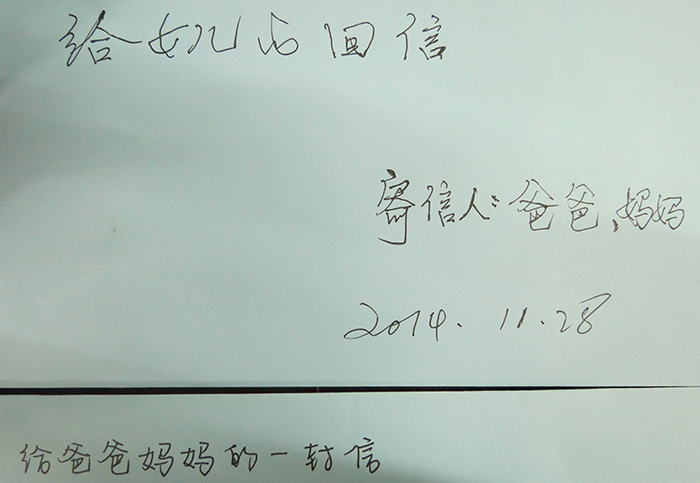 给女儿的回信
寄信人:爸爸、妈妈
2014.11.28
给爸爸妈妈的一封信